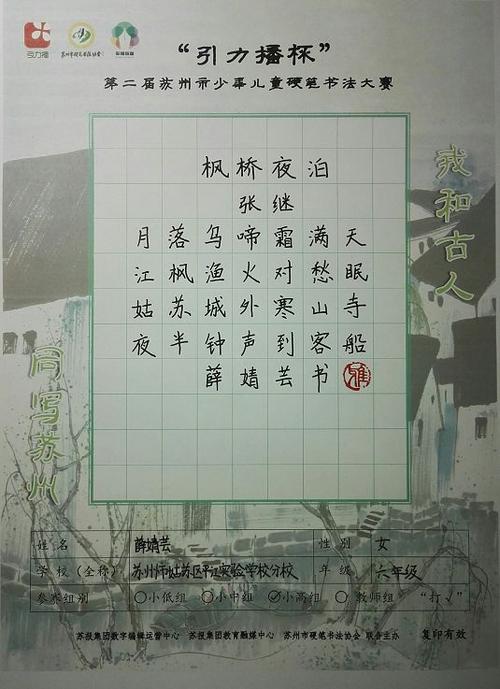 引力播
苏州市硬笔书法协会
“引力播杯”
第二届苏州市少年儿童硬笔书法大赛
我和古人
同写苏州
枫桥夜泊
张继
月落乌啼霜满天
江枫渔火对愁眠
姑苏城外寒山寺
夜半钟声到客船
薛婧芸书
雅
姓名 薛婧芸 性别 女
学校（全称） 苏州市姑苏区平江实验学校分校 年级 六年级
参赛组别 ○小低组 ○小中组 ✓小高组 ○教师组 “打√”
苏报集团数字编辑运营中心 苏报集团教育融媒中心 苏州市硬笔书法协会 联合主办 复印有效